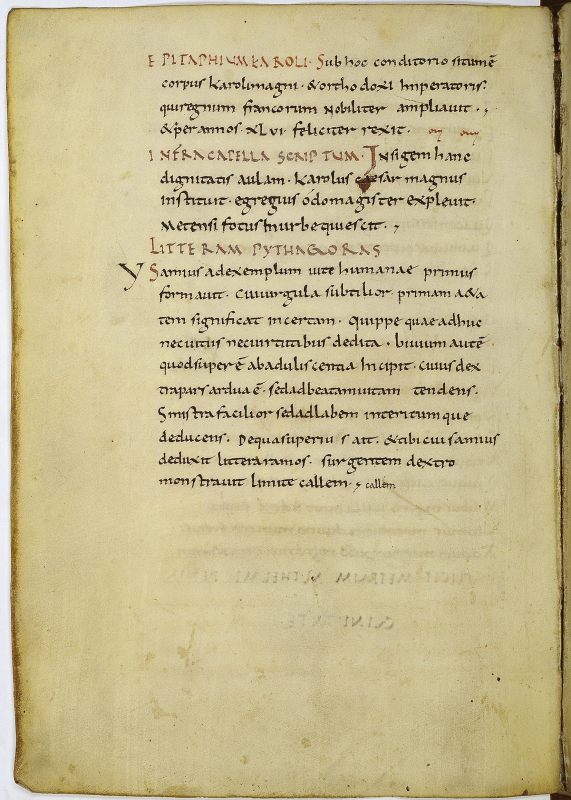 EPITAPHIUM KAROLI· Sub hoc conditorio situm ē
corpus karoli magni· & orthodoxi Imperatoris·
qui regnum francorum nobiliter ampliauit·,
& per annos· XLVI· feliciter rexit·
INFRA CAPELLA SCRIPTUM· Insigem hanc
dignitatis aulam· karolus caesar magnus
instituit· egregius odo magister expleuit·
Metensi fotus In urbe quiescit·,
LITTERAM PYTHAGORAS
Y Samius ad exemplum uite humanae primus
formauit· cui uirgula subtilior primam &a
tem significat incertam· quippe quae adhuc
nec uitiis nec uirtutibus dedita· biuium autē
quod super ē ab aduliscentia Incipit· cuius dex
tra pars ardua ē· sed ad beatam uitam tendens·
Sinistra facilior sed ad labem interitumque
deducens· De qua sic ait· & tibi cui samius
deduxit littera ramos· surgentem dextro
monstrauit limite callem·, callem